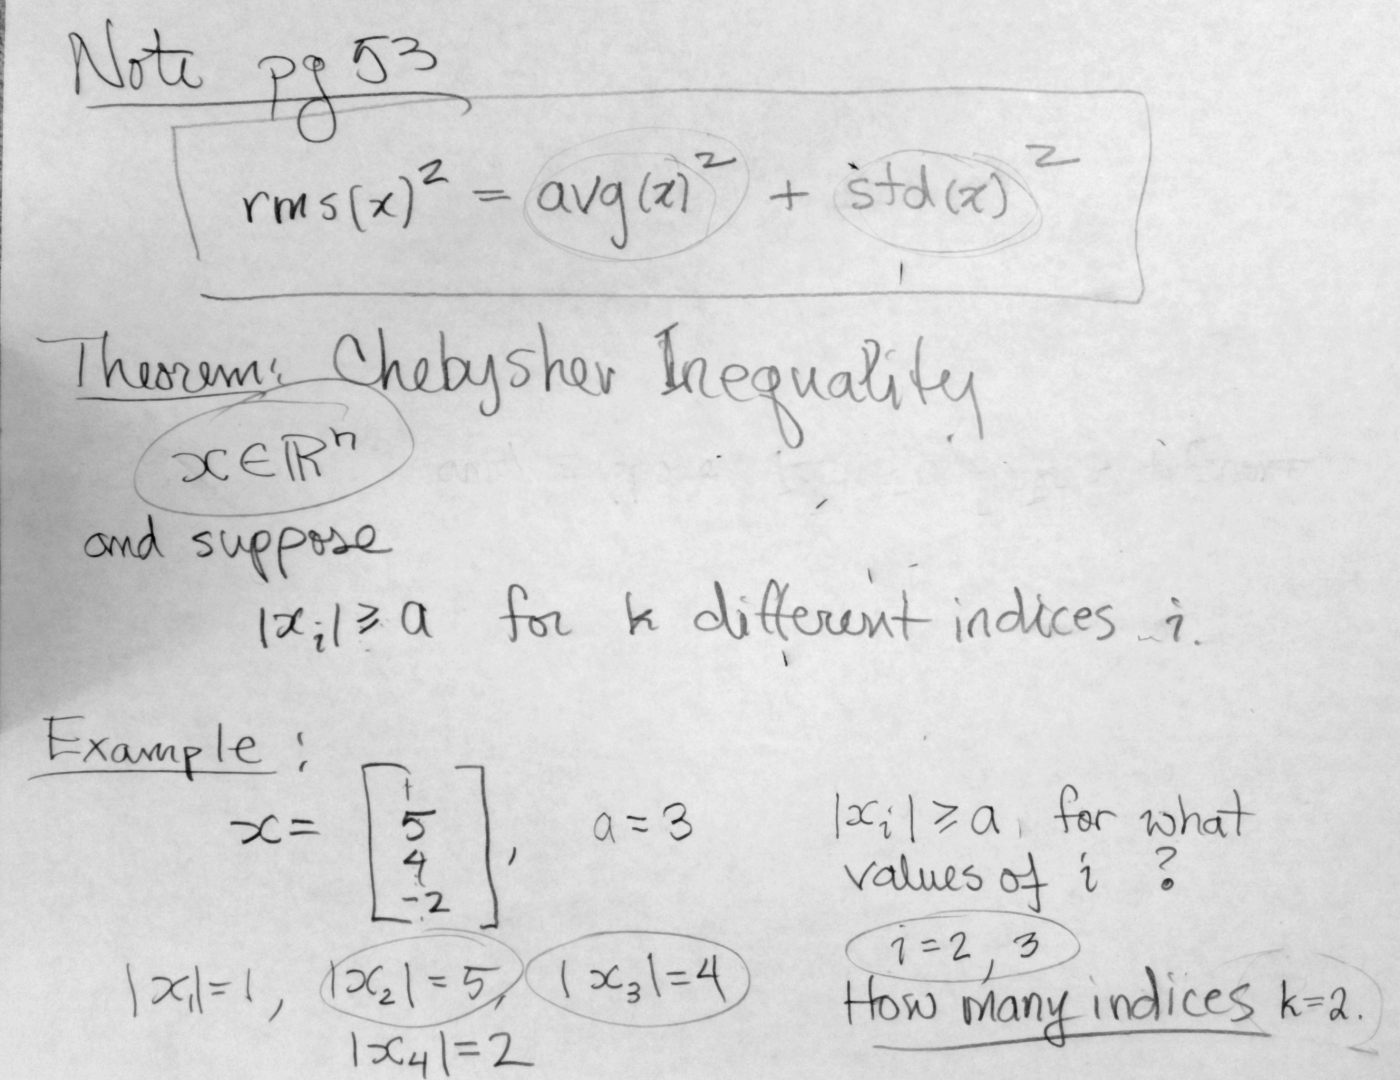 Note pg 53
rms(x)² = avg(x)² + std(x)²
Theorem: Chebyshev Inequality
x ∈ ℝⁿ
and suppose
|xᵢ| ≥ a for k different indices i.
Example:
x = [1 5 4 -2], a = 3
|xᵢ| ≥ a, for what
values of i ?
i = 2, 3
|x₁| = 1, |x₂| = 5, |x₃| = 4
|x₄| = 2
How many indices k=2.